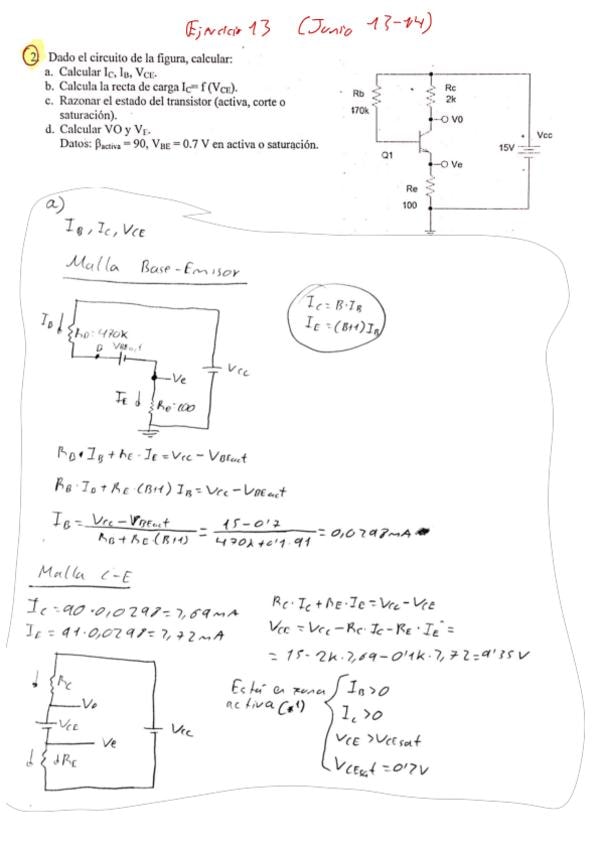 Ejercicio 13 (Junio 13-14)
2. Dado el circuito de la figura, calcular:
a. Calcular IC, IB, VCE.
b. Calcula la recta de carga IC= f (VCE).
c. Razonar el estado del transistor (activa, corte o
saturación).
d. Calcular VO y VE.
Datos: βactiva = 90, VBE = 0.7 V en activa o saturación.
Rb
Rc
2k
V0
Q1
Ve
15V
Vcc
Re
100
a)
IB, IC, VCE
Malla Base-Emisor
IC = B·IB
IE = (B+1) IB
IB
RB=470K
B
Ve
Vcc
IE
Re=100
RB·IB + RE·IE = Vcc - VBEact
RB·IB + RE·(B+1) IB = Vcc - VBEact
IB = Vcc - VBEact / RB + RE·(B+1) = 15-0'7 / 470k+0'1·91 = 0,0298mA
Malla C-E
IC = 90·0,0298 = 2,69mA
IE = 91·0,0298 = 2,72mA
RC·IC + RE·IE = Vcc - VCE
VCE = Vcc - RC·IC - RE·IE =
= 15 - 2k·2,69 - 0'1k·2,72 = 9'35V
RC
Vo
VCE
Ve
RE
Vcc
Está en zona
activa (*1)
IB>0
IC>0
VCE>VCEsat
VCEsat = 0'2V